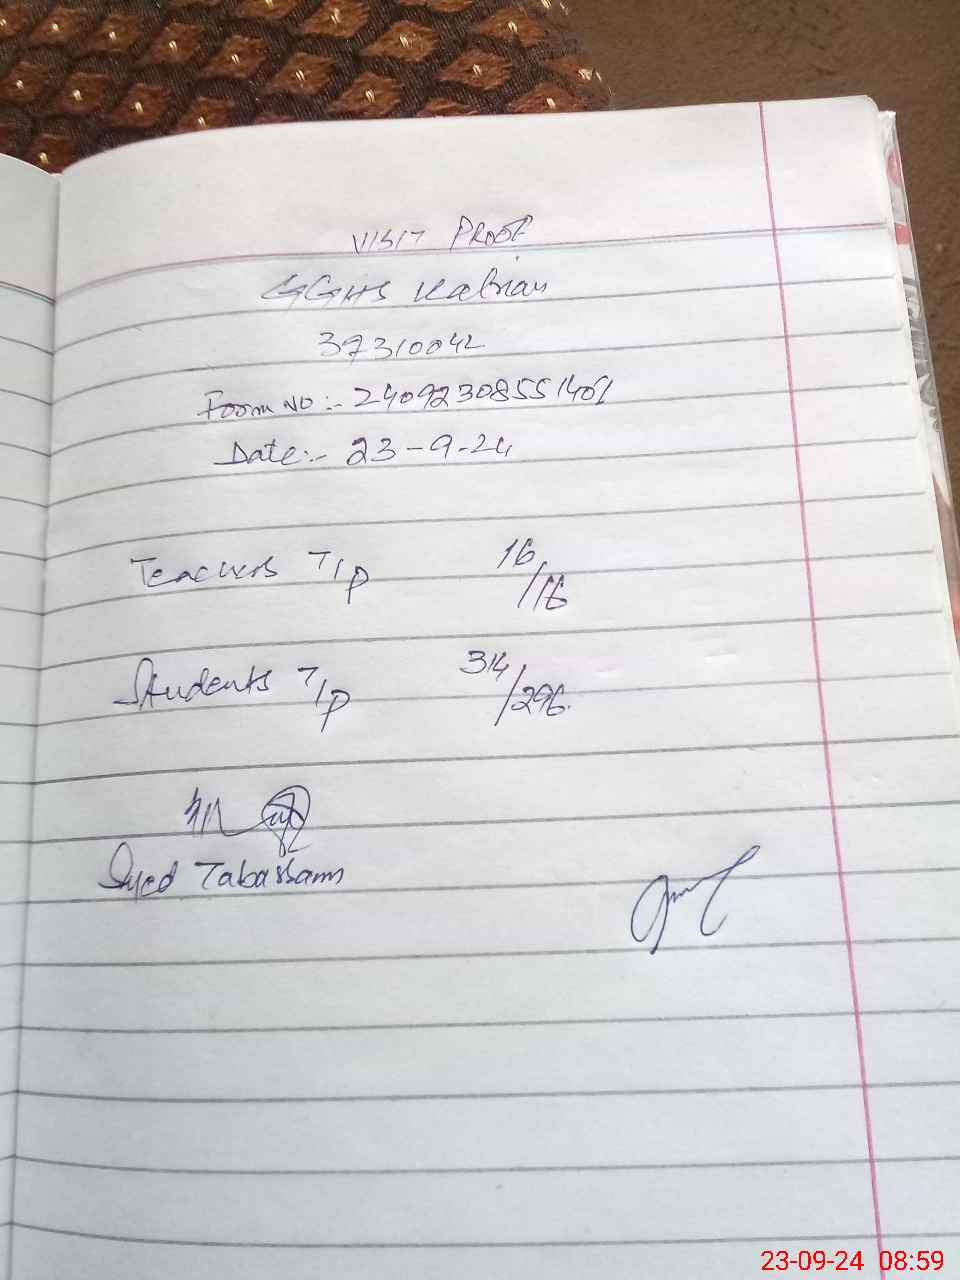 VISIT PROOF
GGHS Kalrian
37310042
Form NO :- 2409230855140%
Date:- 23-9-24
Teachers T/P 16/16
Students T/P 314/296
Syed Tabassam
23-09-24 08:59